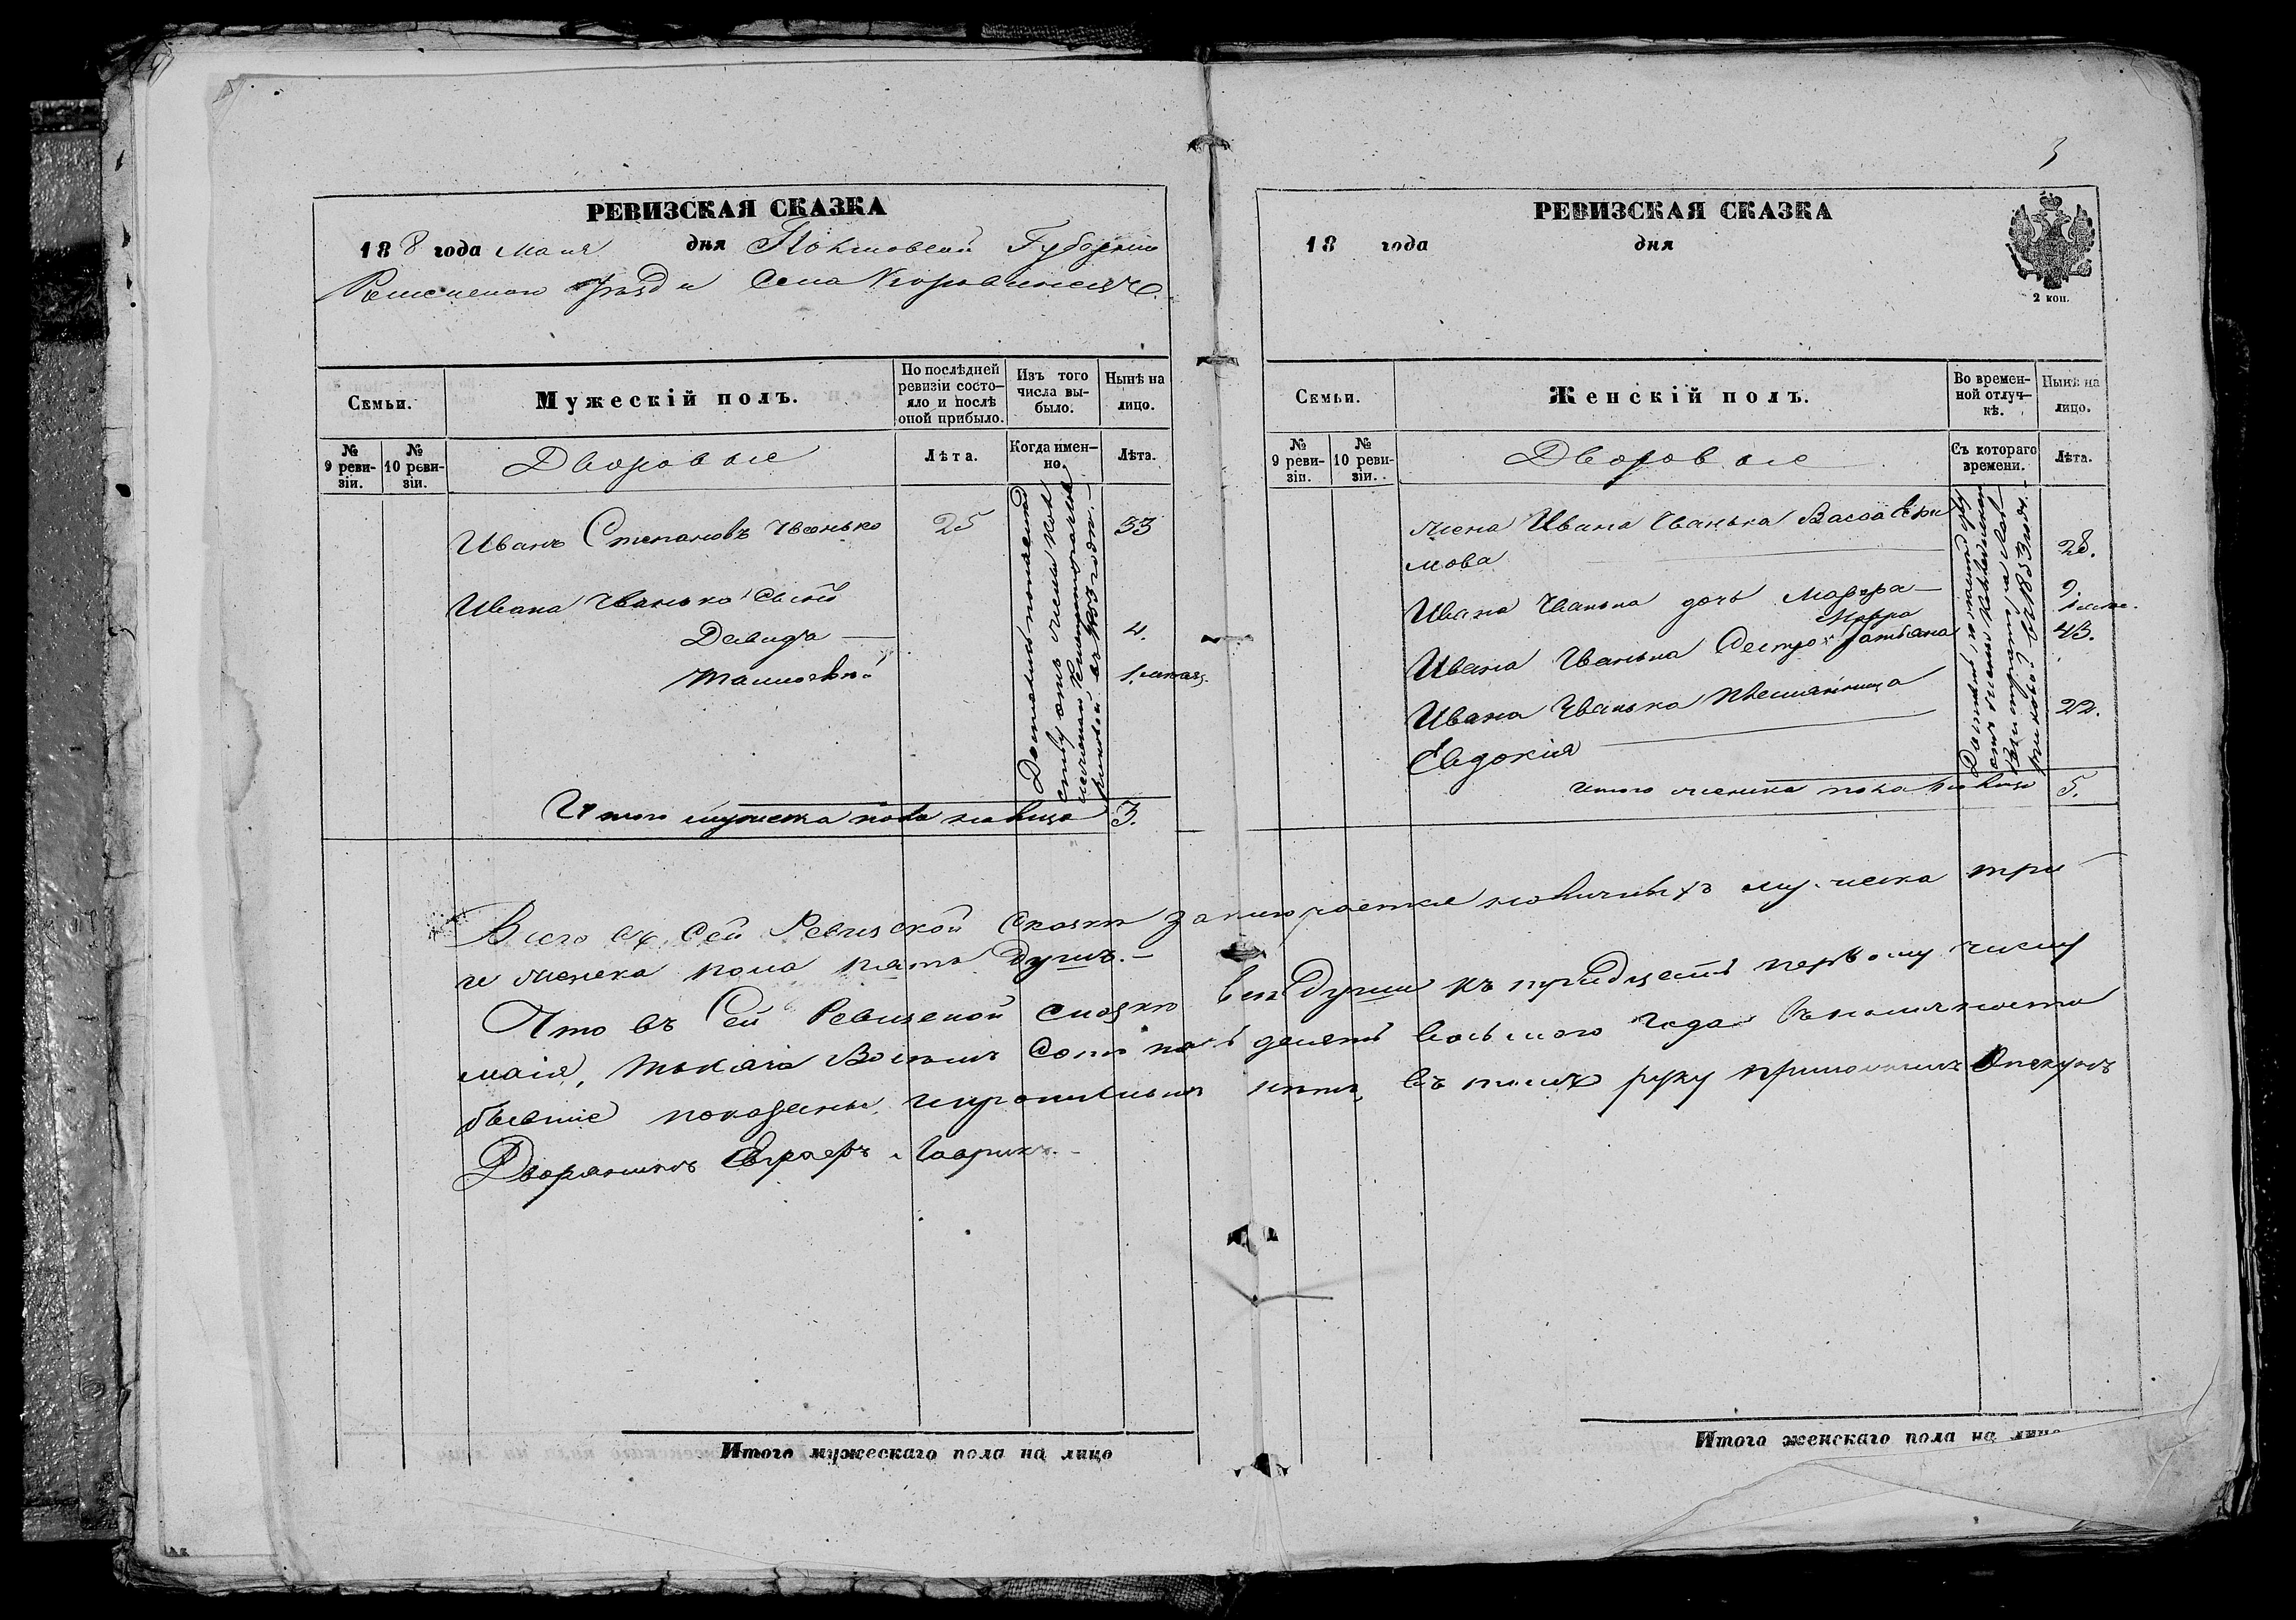 3
РЕВИЗСКАЯ СКАЗКА
188 года Мая дня Полтавской Губерніи
Роменскаго Уѣзда Села Коровинецъ
Семьи.
Мужескій полъ.
По послѣдней ревизіи состо-яло и послѣ оной прибыло.
Изъ того числа вы-было.
Нынѣ на лицо.
№ 9 реви-зіи.
№ 10 реви-зіи.
Дворовые
Лѣта.
Когда имен-но.
Лѣта.
Иванъ Степановъ Иванько 25 33
Ивана Иванька Сыновья
Давидъ — 4.
Тимофей 1. мѣсяц.
Достались помѣщику
въ 1853 годѣ.—
Итого мужеска пола налицо 3.
РЕВИЗСКАЯ СКАЗКА
18 года дня
2 коп.
Семьи.
Женскій полъ.
Во времен-ной отлуч-кѣ.
Нынѣ на лицо.
№ 9 реви-зіи.
№ 10 реви-зіи.
Дворовые
Съ котораго времени.
Лѣта.
жена Ивана Иванька Васса Ефи
мова 28.
Ивана Иванька дочь Марфа — 9.
Марфа
Ивана Иванька Сестра Татьяна 43.
Ивана Иванька племянница
Евдокія 22.
въ 1853 годѣ.—
итого женска пола налицо 5.
Всего въ Сей Ревизской Сказкѣ заключается наличныхъ мужеска три
и женска пола пять душъ.—
Что въ Сей Ревизской Сказкѣ всѣ души къ тридцать первому числу
маія, тысяча Восемь Сотъ пять десятъ восьмого года въ наличности
бывшіе показаны, и прописныхъ нѣтъ, въ томъ руку приложилъ Опекунъ
Дворянинъ Гаврикъ.—
Итого мужескаго пола на лицо
Итого женскаго пола на лицо